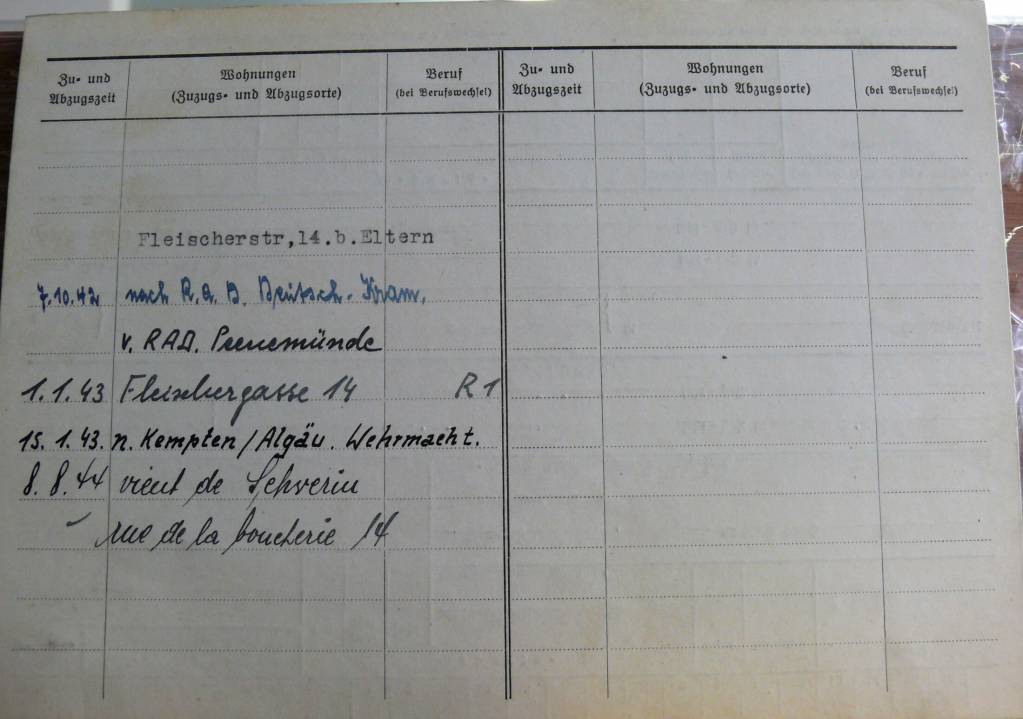 Zu- und Abzugszeit
Wohnungen
(Zuzugs- und Abzugsorte)
Beruf
(bei Berufswechsel)
Zu- und Abzugszeit
Wohnungen
(Zuzugs- und Abzugsorte)
Beruf
(bei Berufswechsel)
Fleischerstr,14.b.Eltern
7.10.42 nach R.a.D. Deutsch-
v. RAD. Peenemünde
1.1.43 Fleischergasse 14 R 1
15.1.43. n. Kempten/Algäu. Wehrmacht.
8.8.44 vient de Schverin
rue de la boucherie 14